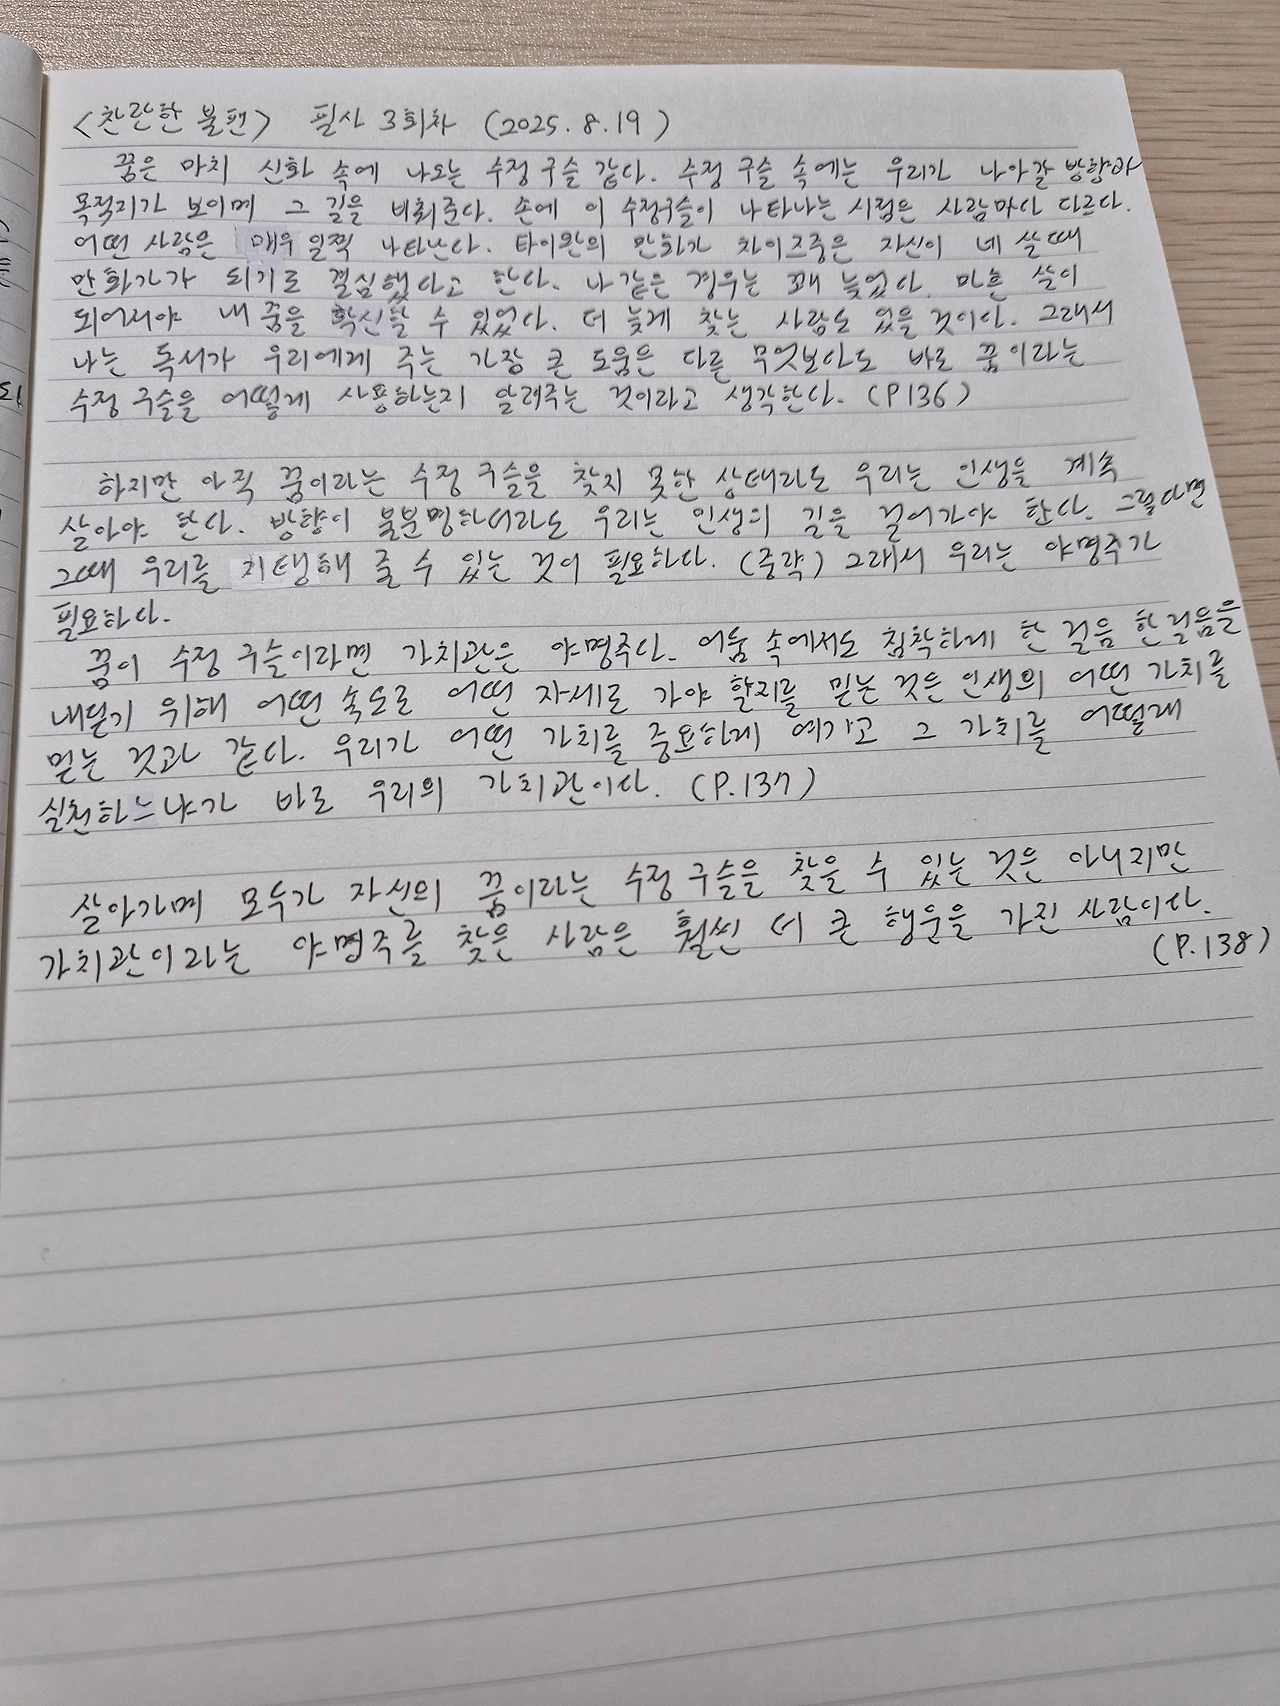 <찬란한 불편> 필사 3회차 (2025.8.19)
꿈은 마치 신화 속에 나오는 수정 구슬 같다. 수정 구슬 속에는 우리가 나아갈 방향과
목적지가 보이며 그 길을 비춰준다. 손에 이 수정구슬이 나타나는 시점은 사람마다 다르다.
어떤 사람은 매우 일찍 나타난다. 타이완의 만화가 차이즈중은 자신이 네 살 때
만화가가 되기로 결심했다고 한다. 나 같은 경우는 꽤 늦었다. 마흔 살이
되어서야 내 꿈을 확신할 수 있었다. 더 늦게 찾는 사람도 있을 것이다. 그래서
나는 독서가 우리에게 주는 가장 큰 도움은 다른 무엇보다도 바로 꿈이라는
수정 구슬을 어떻게 사용하는지 알려주는 것이라고 생각한다. (P136)
하지만 아직 꿈이라는 수정 구슬을 찾지 못한 상태라도 우리는 인생을 계속
살아야 한다. 방향이 불분명하더라도 우리는 인생의 길을 걸어가야 한다. 그렇다면
그때 우리를 지탱해 줄 수 있는 것이 필요하다. (중략) 그래서 우리는 야명주가
필요하다.
꿈이 수정 구슬이라면 가치관은 야명주다. 어둠 속에서도 침착하게 한 걸음 한걸음을
내딛기 위해 어떤 속도로 어떤 자세로 가야 할지를 믿는 것은 인생의 어떤 가치를
믿는 것과 같다. 우리가 어떤 가치를 중요하게 여기고 그 가치를 어떻게
실천하느냐가 바로 우리의 가치관이다. (P.137)
살아가며 모두가 자신의 꿈이라는 수정 구슬을 찾을 수 있는 것은 아니지만
가치관이라는 야명주를 찾은 사람은 훨씬 더 큰 행운을 가진 사람이다.
(P.138)